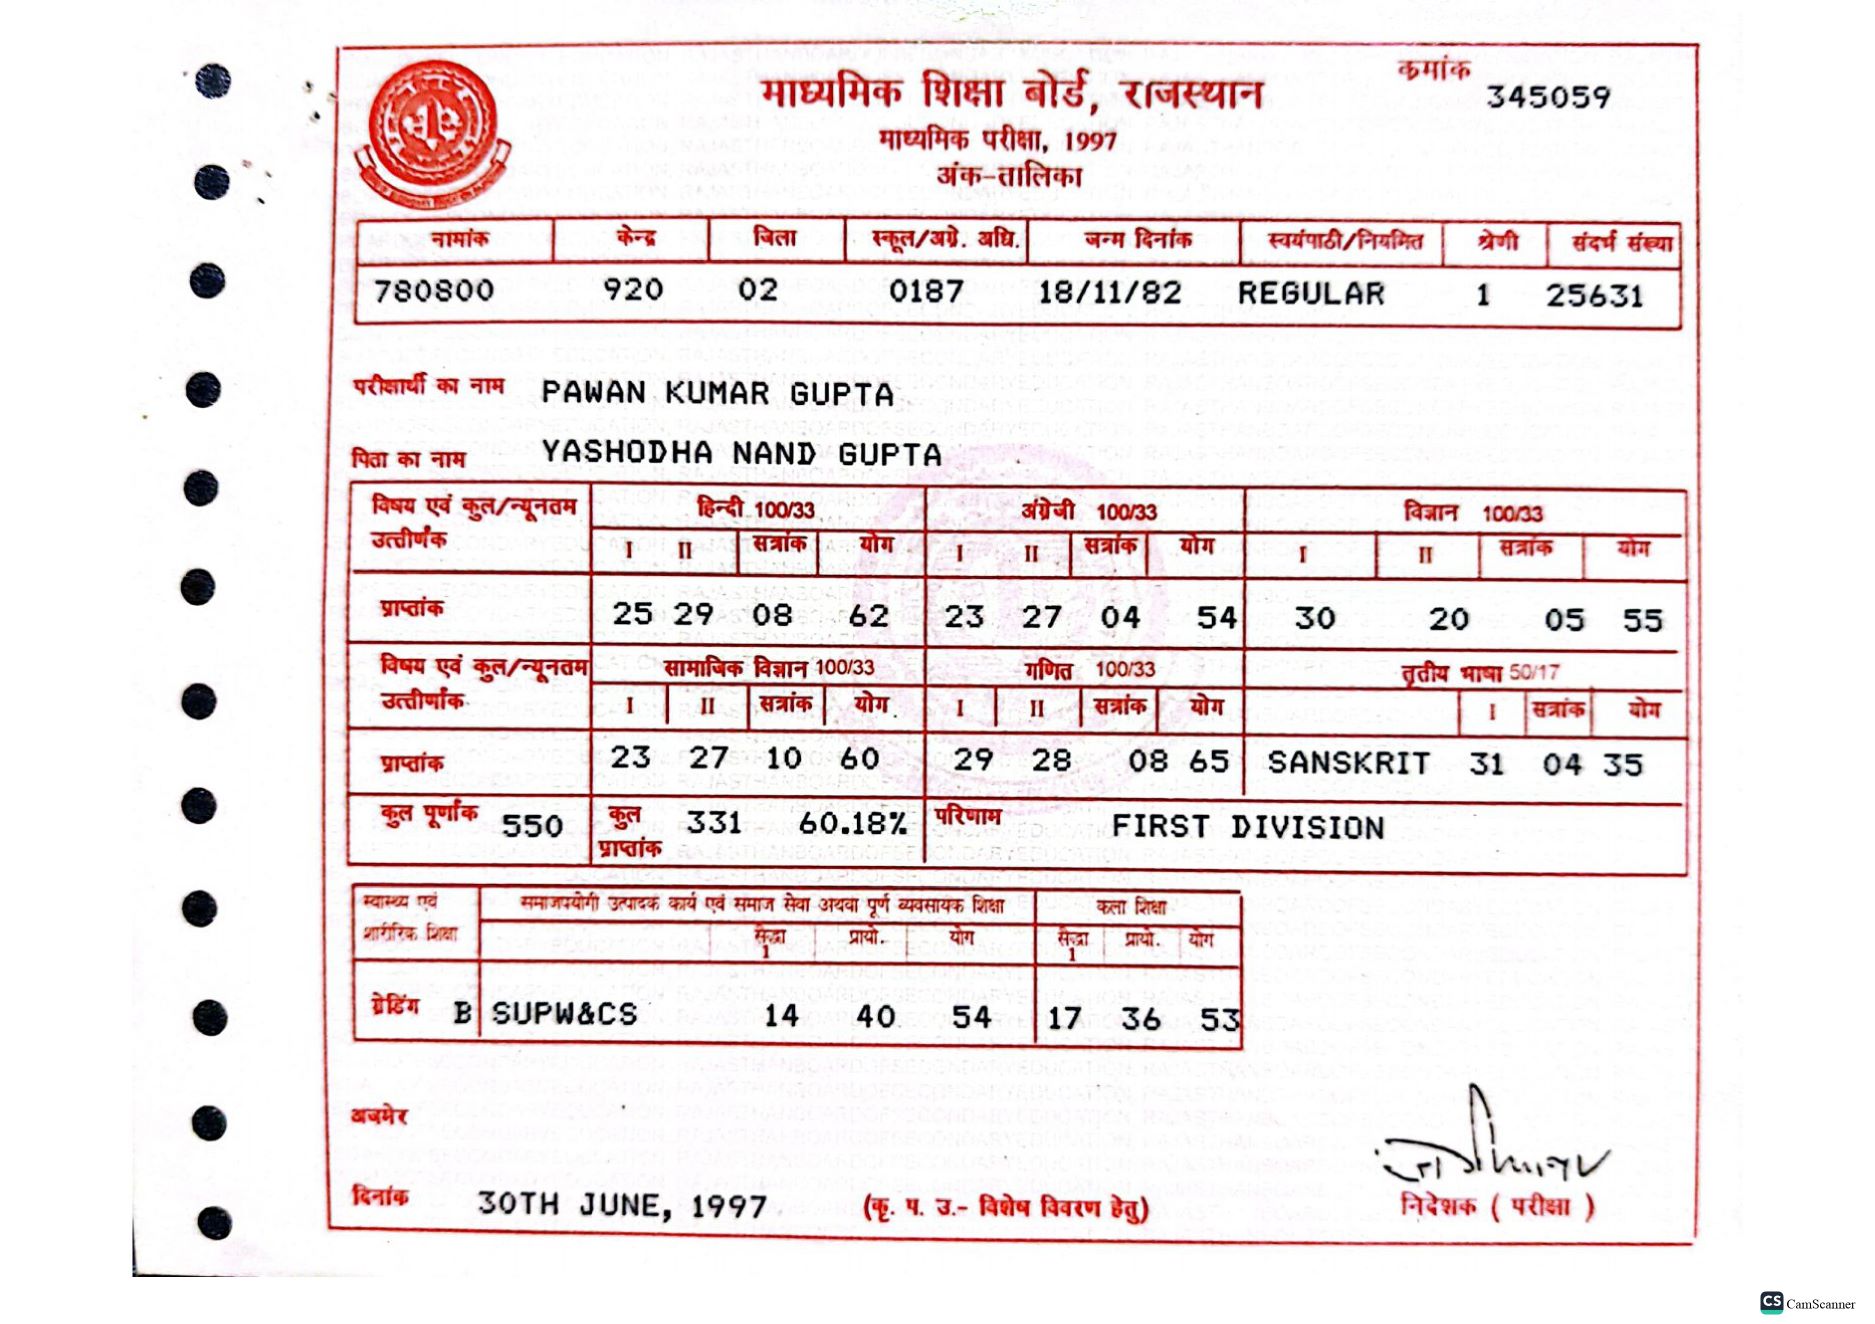 क्रमांक
345059
माध्यमिक शिक्षा बोर्ड, राजस्थान
माध्यमिक परीक्षा, 1997
अंक-तालिका
नामांक केन्द्र जिला स्कूल/अग्रे. अधि. जन्म दिनांक स्वयंपाठी/नियमित श्रेणी संदर्भ संख्या
780800 920 02 0187 18/11/82 REGULAR 1 25631
परीक्षार्थी का नाम PAWAN KUMAR GUPTA
पिता का नाम YASHODHA NAND GUPTA
विषय एवं कुल/न्यूनतम हिन्दी 100/33 अंग्रेजी 100/33 विज्ञान 100/33
उत्तीर्णांक I II सत्रांक योग I II सत्रांक योग I II सत्रांक योग
प्राप्तांक 25 29 08 62 23 27 04 54 30 20 05 55
विषय एवं कुल/न्यूनतम सामाजिक विज्ञान 100/33 गणित 100/33 तृतीय भाषा 50/17
उत्तीर्णांक I II सत्रांक योग I II सत्रांक योग I सत्रांक योग
प्राप्तांक 23 27 10 60 29 28 08 65 SANSKRIT 31 04 35
कुल पूर्णांक 550 कुल प्राप्तांक 331 60.18% परिणाम FIRST DIVISION
स्वास्थ्य एवं समाजपयोगी उत्पादक कार्य एवं समाज सेवा अथवा पूर्ण व्यवसायक शिक्षा कला शिक्षा
शारीरिक शिक्षा सैद्धा 1 प्रायो. योग सैद्धा 1 प्रायो. योग
ग्रेडिंग B SUPW&CS 14 40 54 17 36 53
अजमेर
दिनांक 30TH JUNE, 1997 (कृ. प. उ.- विशेष विवरण हेतु) निदेशक ( परीक्षा )
CS CamScanner